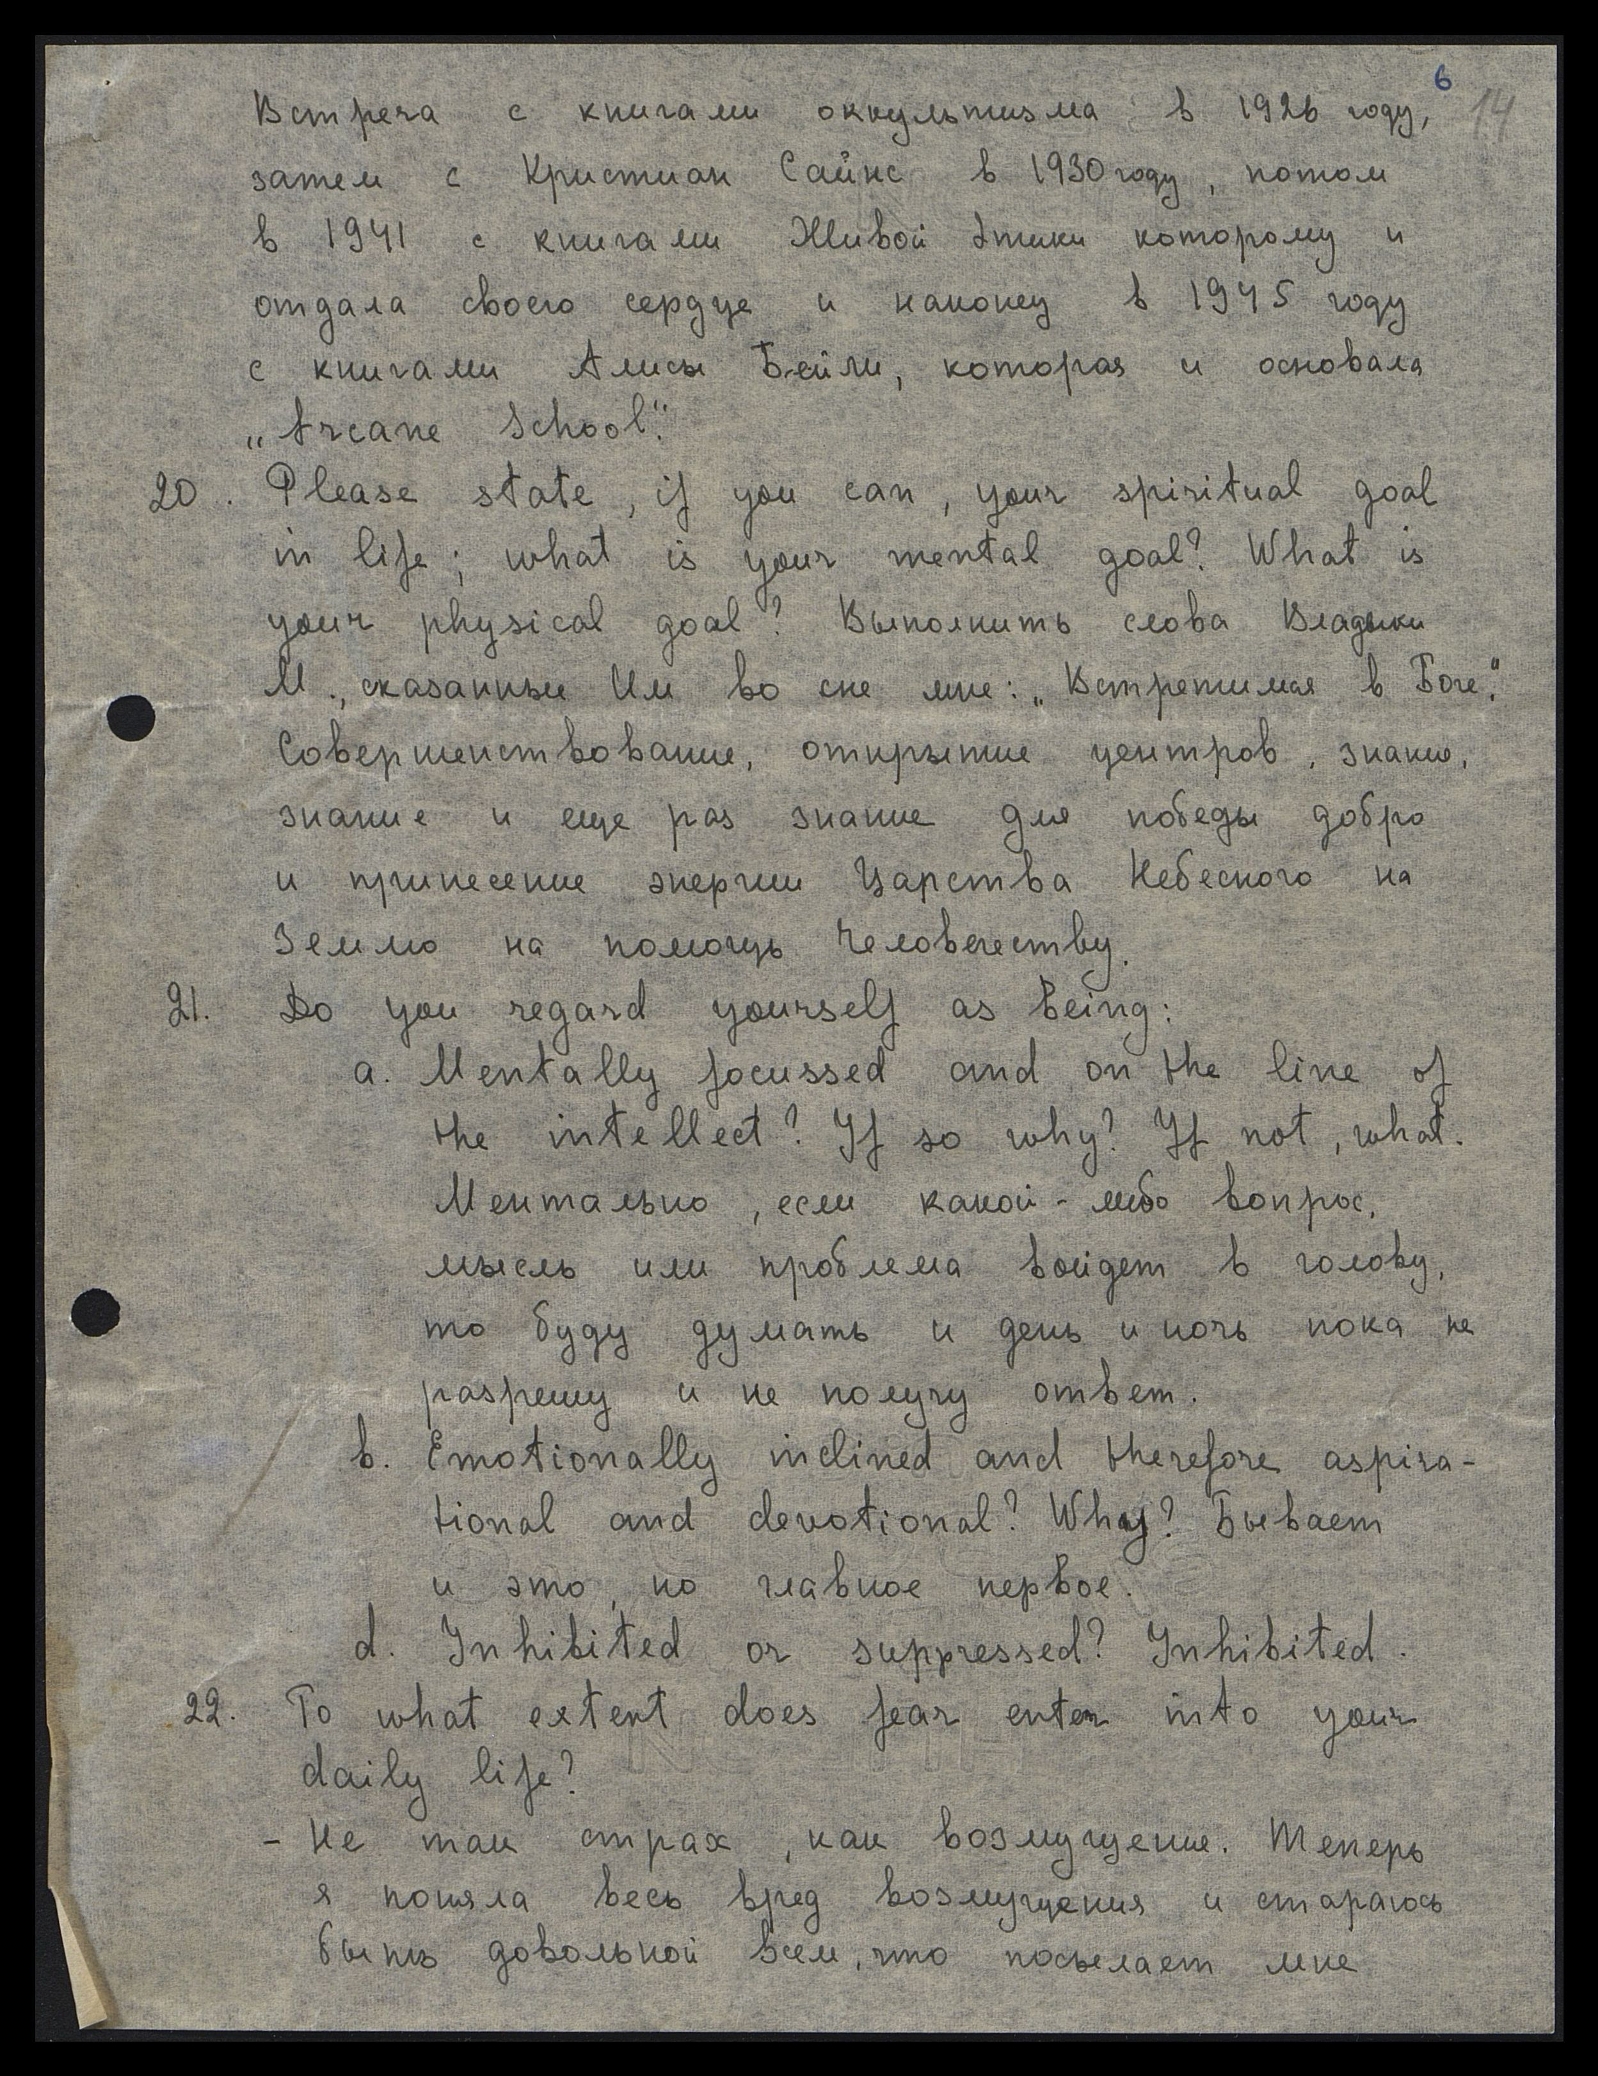 6
14
Встреча с книгами оккультизма в 1926 году,
затем с Кристиан Сайнс в 1930 году, потом
в 1941 с книгами Живой Этики которому и
отдала своего сердце и наконец в 1945 году
с книгами Алисы Бейли, которая и основала
„Arcane School“.
20. Please state, if you can, your spiritual goal
in life; what is your mental goal? What is
your physical goal? Выполнить слова Владыки
М., сказанные Им во сне мне: „Встретимся в Боге“.
Совершенствование, открытие центров, знание,
знание и еще раз знание для победы добра
и принесение энергии Царства Небесного на
Землю на помощь Человечеству.
21. Do you regard yourself as being:
a. Mentally focussed and on the line of
the intellect? If so why? If not, what.
Ментально, если какой-либо вопрос,
мысль или проблема войдет в голову,
то буду думать и день и ночь пока не
разрешу и не получу ответ.
b. Emotionally inclined and therefore aspira-
tional and devotional? Why? Бывает
и это, но главное первое.
d. Inhibited or suppressed? Inhibited.
22. To what extent does fear enter into your
daily life?
- Не так страх, как возмущение. Теперь
я поняла весь вред возмущения и стараюсь
быть довольной всем, что посылает мне